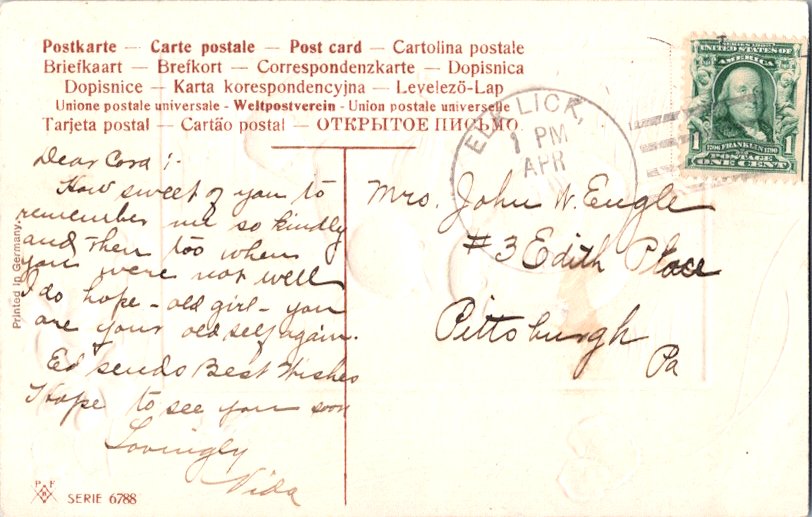 Postkarte — Carte postale — Post card — Cartolina postale
Briefkaart — Brefkort — Correspondenzkarte — Dopisnica
Dopisnice — Karta korespondencyjna — Levelező-Lap
Unione postale universale - Weltpostverein - Union postale universelle
Tarjeta postal — Cartão postal — ОТКРЫТОЕ ПИСЬМО
SERIES 1902
UNITED STATES OF
AMERICA
1706 FRANKLIN 1790
1 POSTAGE 1
ONE CENT
ELK LICK,
1 PM
APR
Dear Cora ;-
How sweet of you to
remember me so kindly
and then too when
you were not well
I do hope - old girl - you
are your old self again.
Ed sends Best Wishes
Hope to see you soon
Lovingly
Vida
Mrs. John W. Engle
#3 Edith Place
Pittsburgh
Pa
Printed in Germany.
P F
B
SERIE 6788